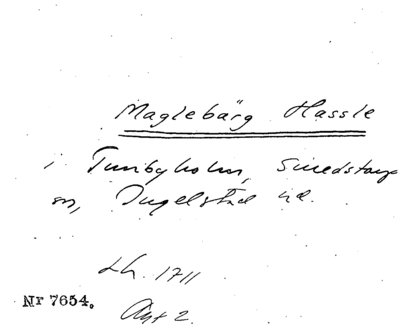 Maglebärg Hassle
i Tunbyholm, Smedstorps
sn, Ingelstad hd.
Lh. 1711
Akt 2.
Nr 7654.